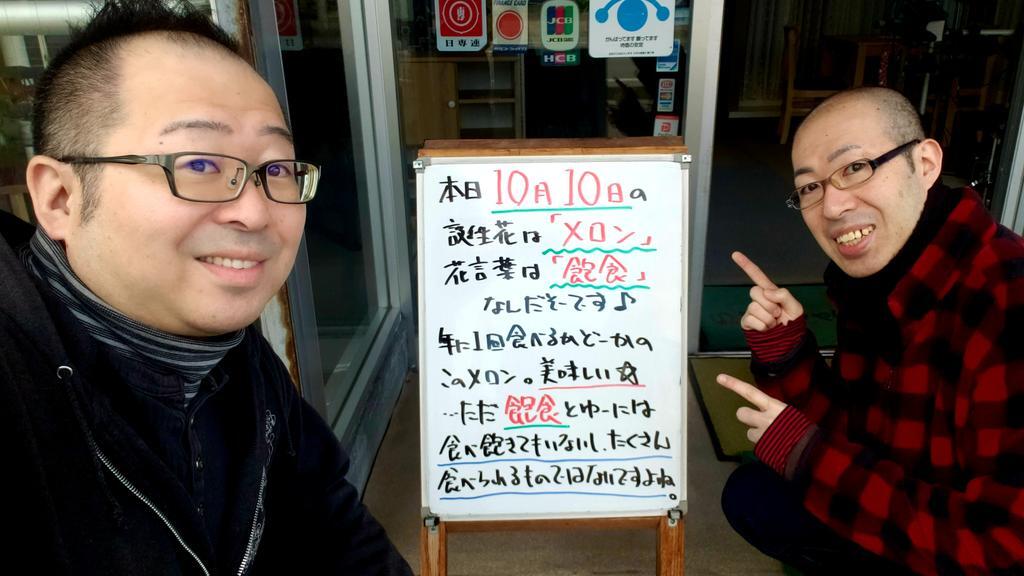 日専連
JCB
HCB
がんばってます 腹ってます
本日10月10日の
誕生花は「メロン」
花言葉は「飽食」
なしだそーです♪
年に1回食べるかどーかの
このメロン。美味しい☆
…ただ飽食とゆーには
食べ飽きてもいないし、たくさん
食べられるものではないですよね。